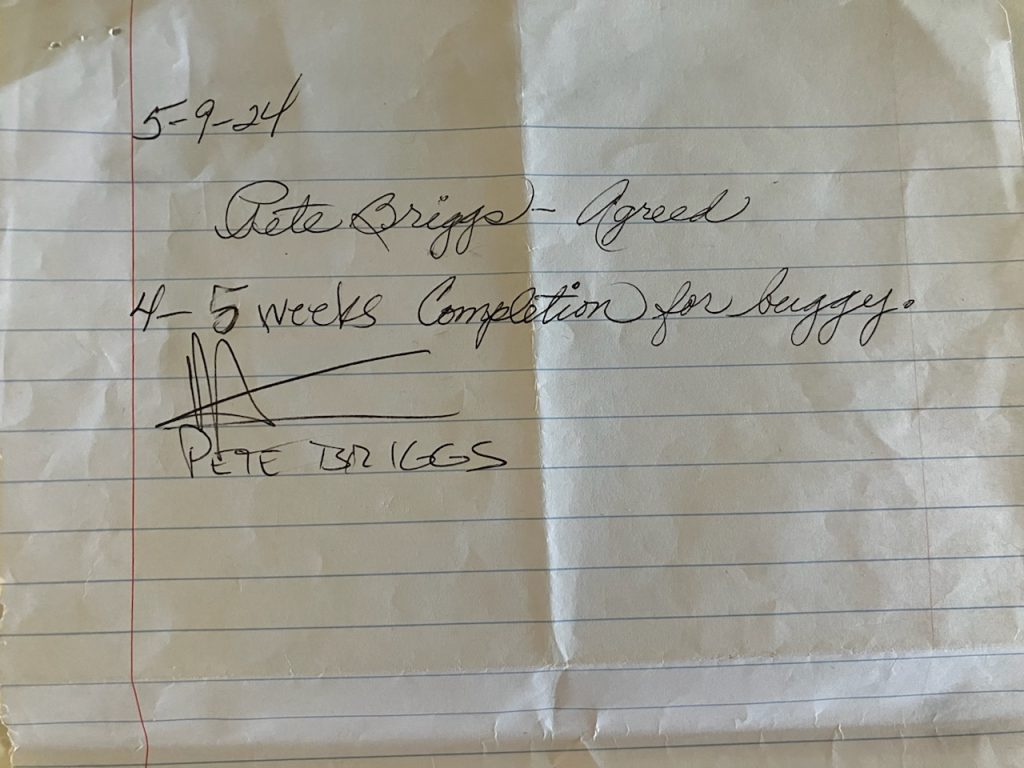 5-9-24
Pete Briggs - Agreed
4-5 weeks Completion for buggy.
PETE BRIGGS